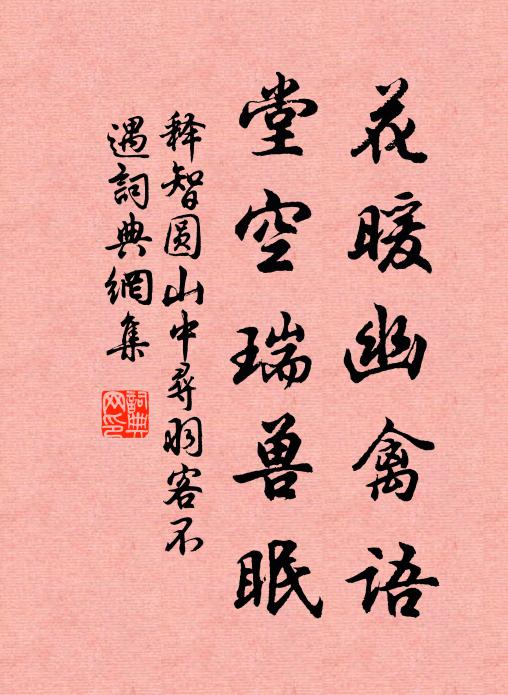 花暖幽禽语
堂空瑞兽眠
释智圆山中寻羽客不
遇词典網集
詞典
网印